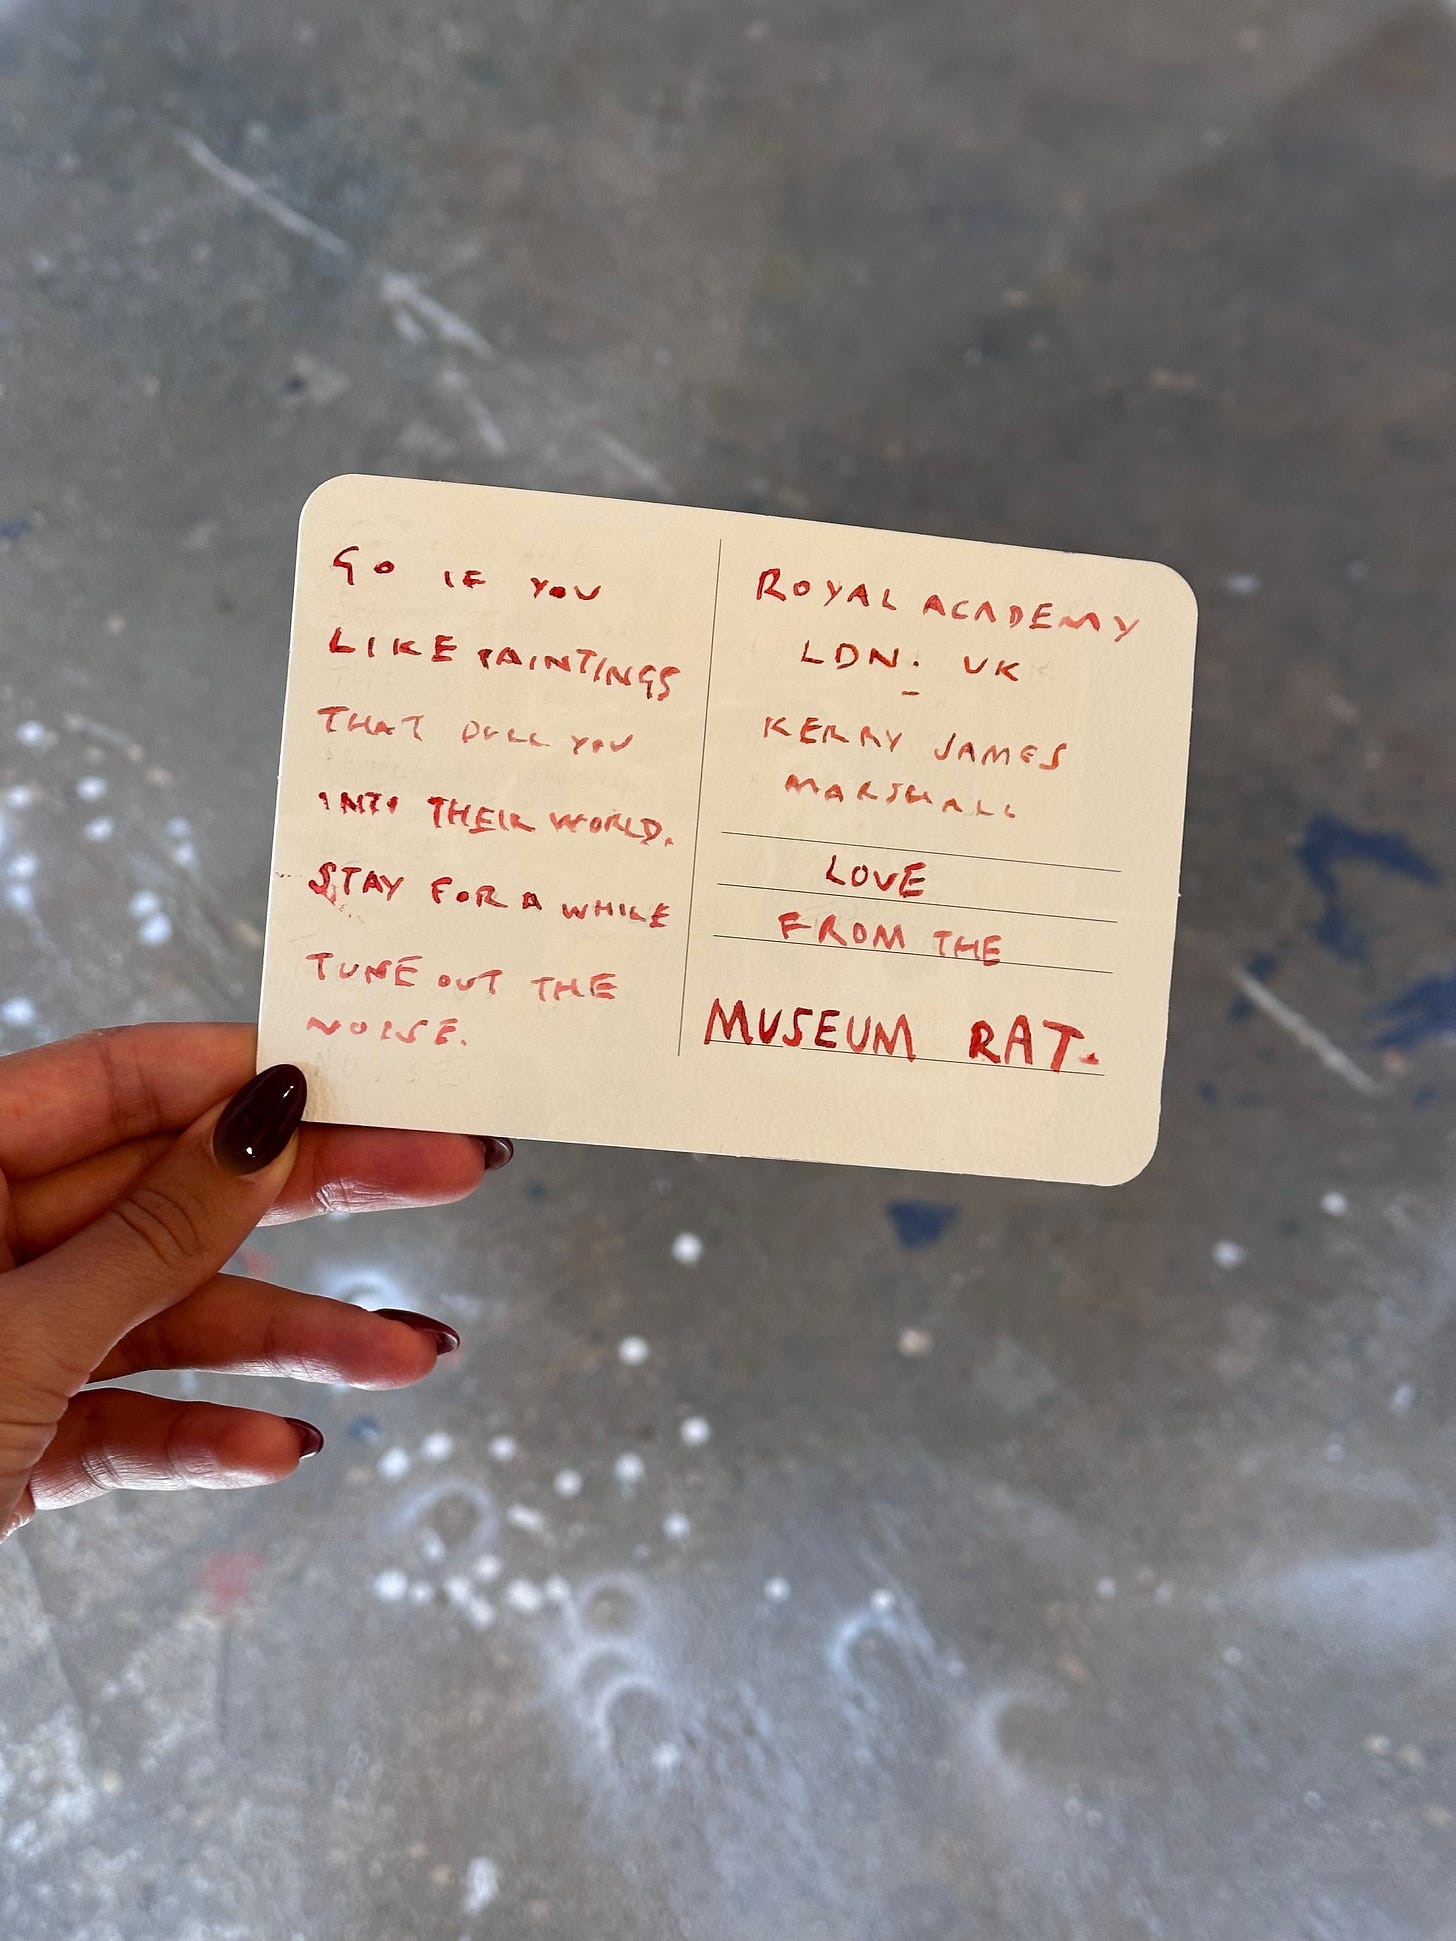 GO IF YOU
LIKE PAINTINGS
THAT PULL YOU
INTO THEIR WORLD.
STAY FOR A WHILE
TUNE OUT THE
NOISE.
ROYAL ACADEMY
LDN. UK
-
KERRY JAMES
MARSHALL
LOVE
FROM THE
MUSEUM RAT.